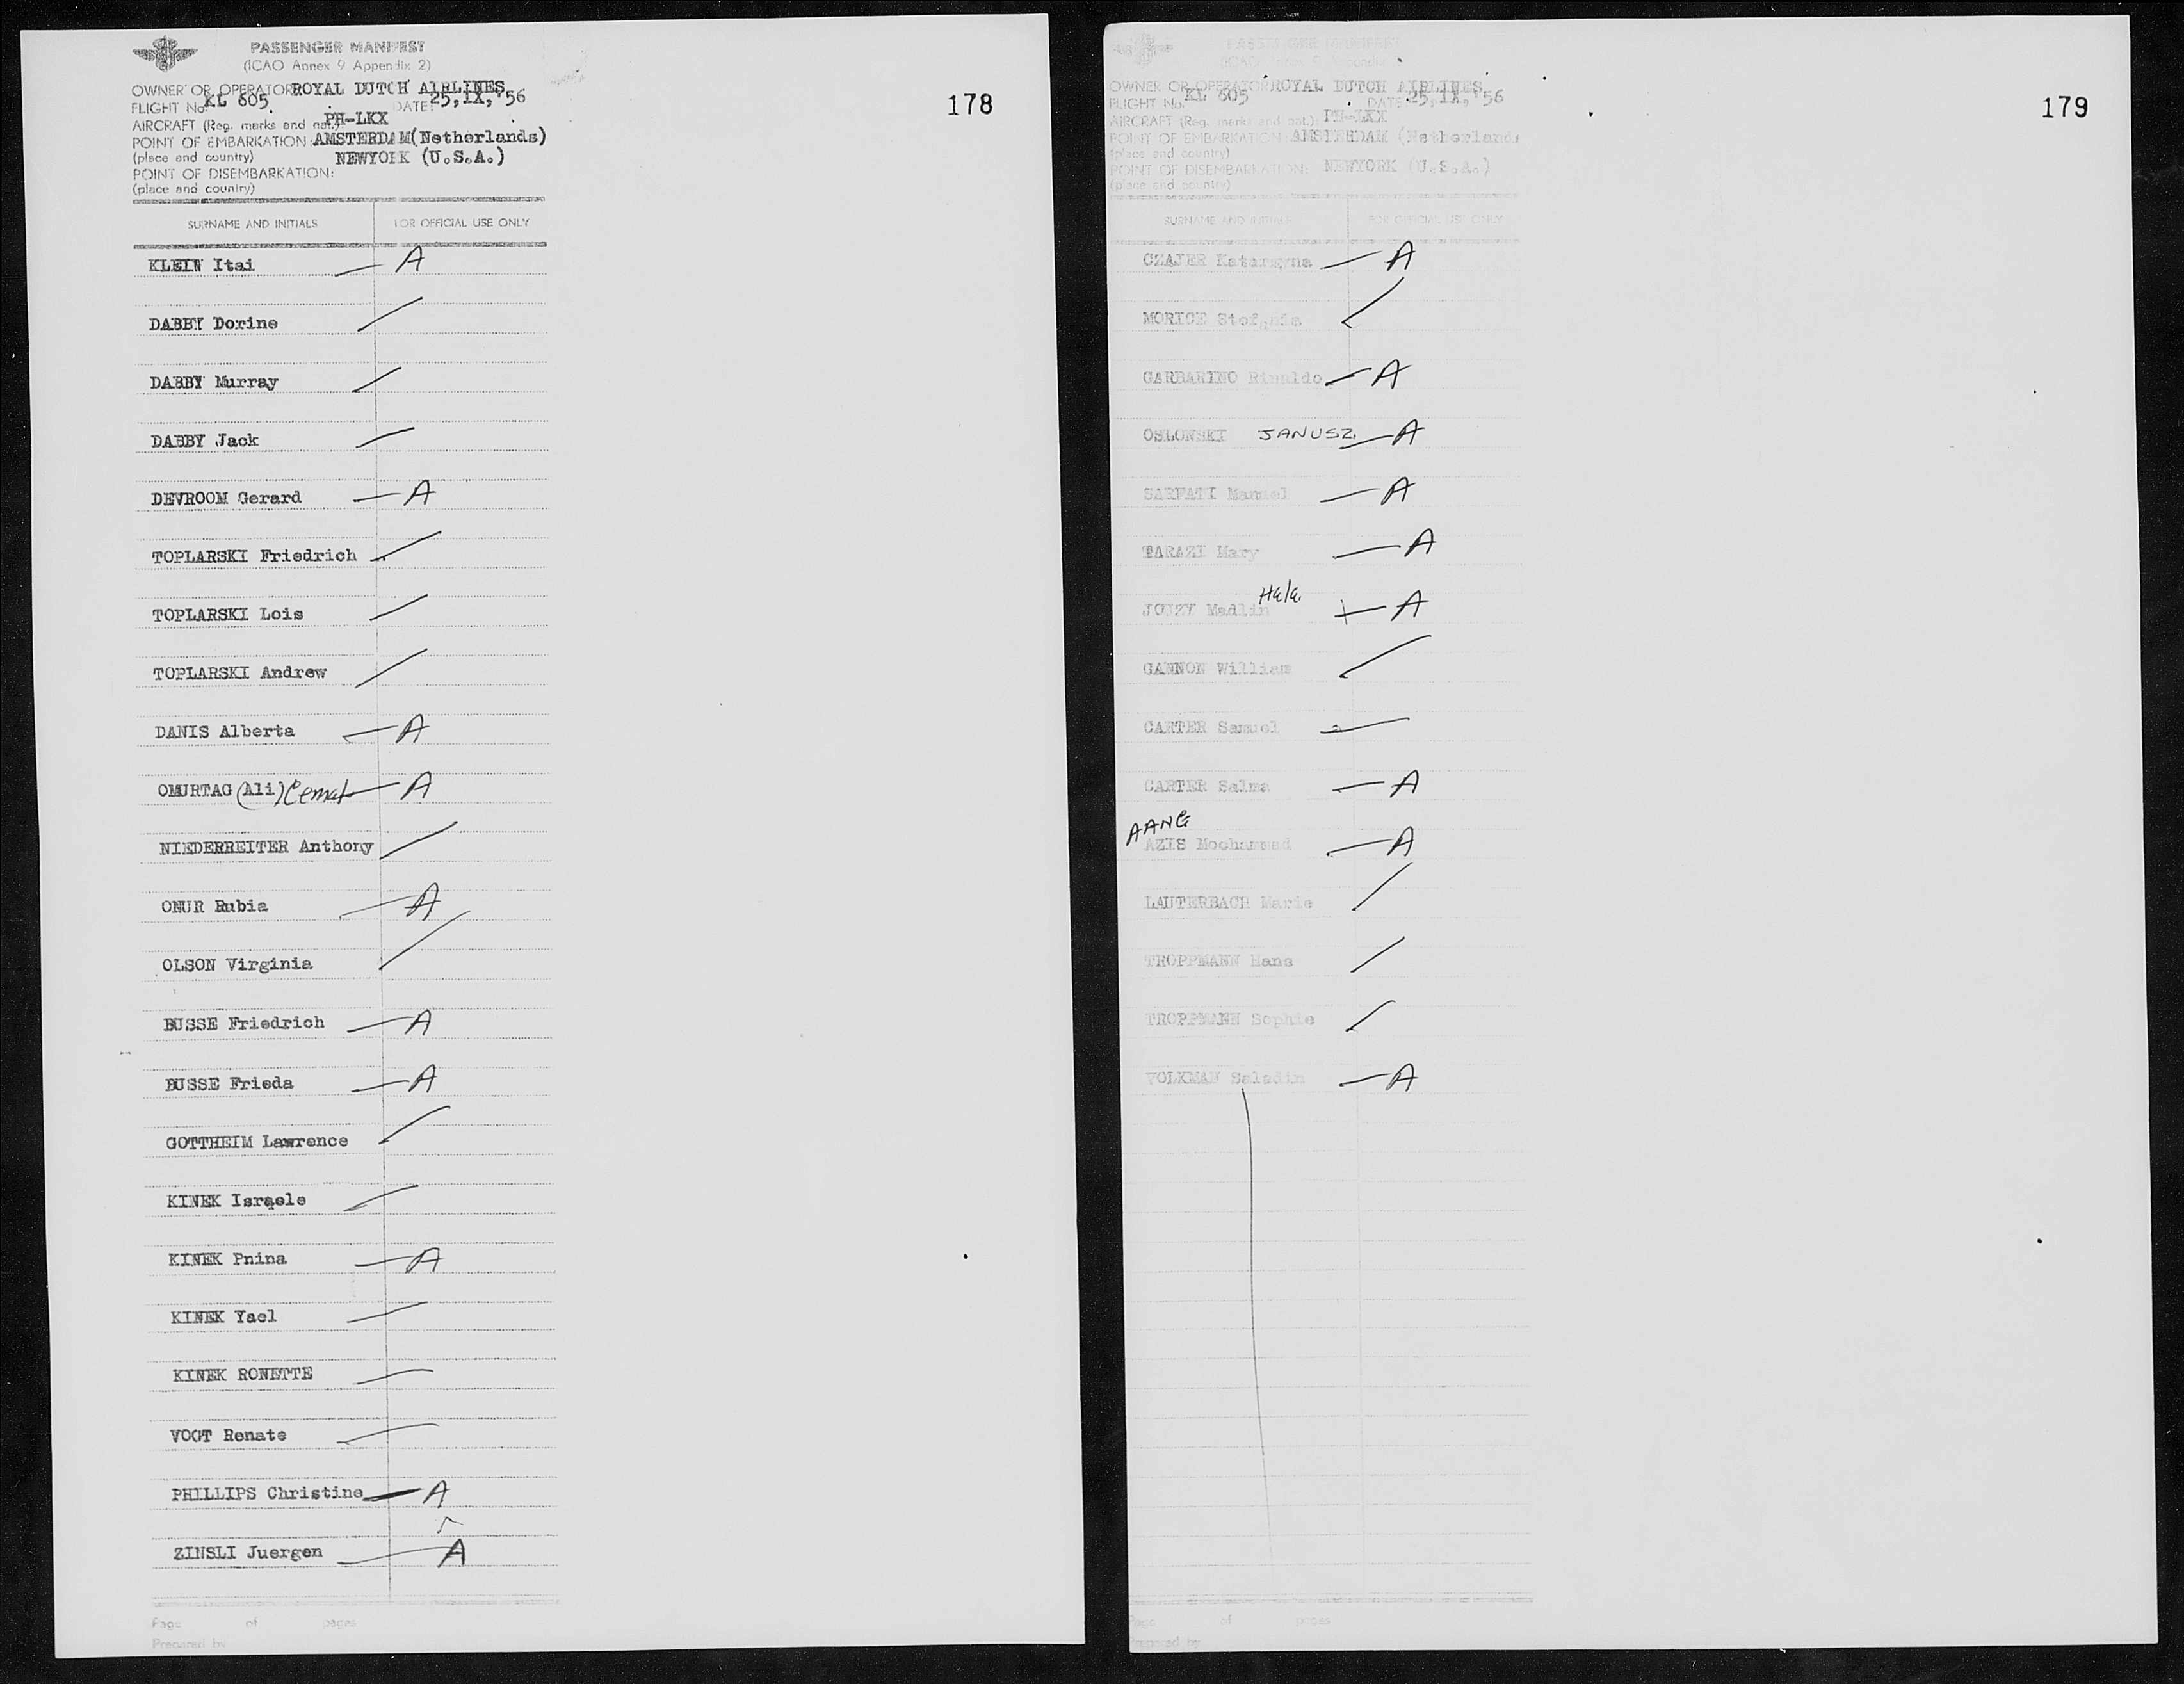 PASSENGER MANIFEST
(ICAO Annex 9 Appendix 2)
OWNER OR OPERATOR ROYAL DUTCH AIRLINES
FLIGHT No. KL 605. DATE: 25, IX, '56
178
AIRCRAFT (Reg. marks and nat.): PH-LKX
POINT OF EMBARKATION: AMSTERDAM(Netherlands)
(place and country)
NEWYORK (U.S.A.)
POINT OF DISEMBARKATION:
(place and country)
SURNAME AND INITIALS FOR OFFICIAL USE ONLY
KLEIN Itai — A
DABBY Dorine
DABBY Murray
DABBY Jack
DEVROOM Gerard — A
TOPLARSKI Friedrich
TOPLARSKI Lois
TOPLARSKI Andrew
DANIS Alberta — A
OMURTAG (Ali) Cemal — A
NIEDERREITER Anthony
ONUR Rubia — A
OLSON Virginia
BUSSE Friedrich — A
BUSSE Frieda — A
GOTTHEIM Lawrence
KINEK Israele
KINEK Pnina — A
KINEK Yael
KINEK RONETTE
VOGT Renate
PHILLIPS Christine — A
ZINSLI Juergen — A
Page of pages
Prepared by
PASSENGER MANIFEST
(ICAO Annex 9 Appendix
OWNER OR OPERATOR ROYAL DUTCH AIRLINES
FLIGHT No. KL 605 DATE 25, IX, '56
179
AIRCRAFT (Reg. marks and nat.): PH-LKX
POINT OF EMBARKATION: AMSTERDAM (Netherlands
(place and country)
POINT OF DISEMBARKATION: NEWYORK (U.S.A.)
(place and country)
SURNAME AND INITIALS FOR OFFICIAL USE ONLY
CZAJER Katarzyna — A
MORICE Stefania
GARBARINO Rinaldo — A
OSLONSKI JANUSZ — A
SARFATI Manuel — A
TARAZI Mary — A
JOUZY Madlin Hela — A
GANNON William
CARTER Samuel
CARTER Salma — A
AANG
AZIS Mochammad — A
LAUTERBACH Marie
TROPPMANN Hans
TROPPMANN Sophie
VOLKMAN Saladin — A
Page of pages
Prepared by